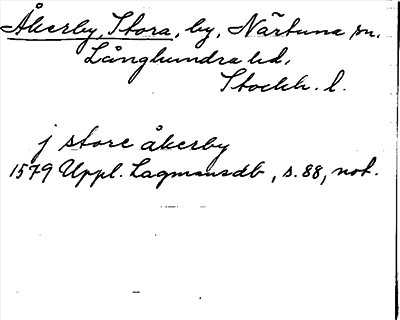 Åkerby, Stora, by, Närtuna sn.
Långhundra hd.
Stockh. l.
j store åkerby
1579 Uppl. Lagmansdb, s. 88, not.